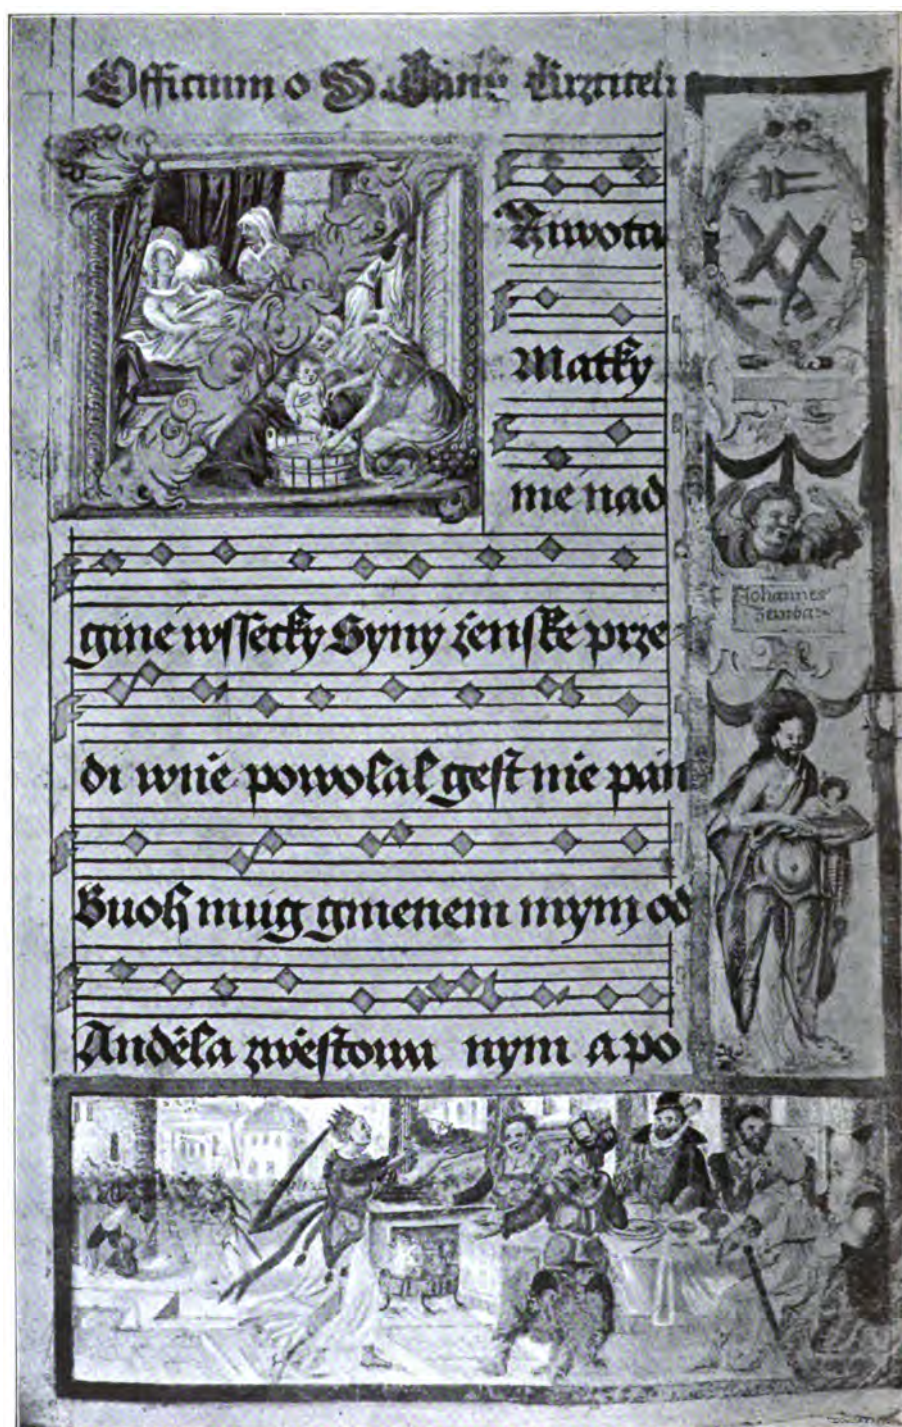 Officium o S. Janu Krztiteli
Ziwota
Matky
mé nad
giné wssecky Syny ženské prze
di wnie powolal gest nie pan
Buoh můg gmenem mym od
Anděla zwěstowa nym a po
Johannes